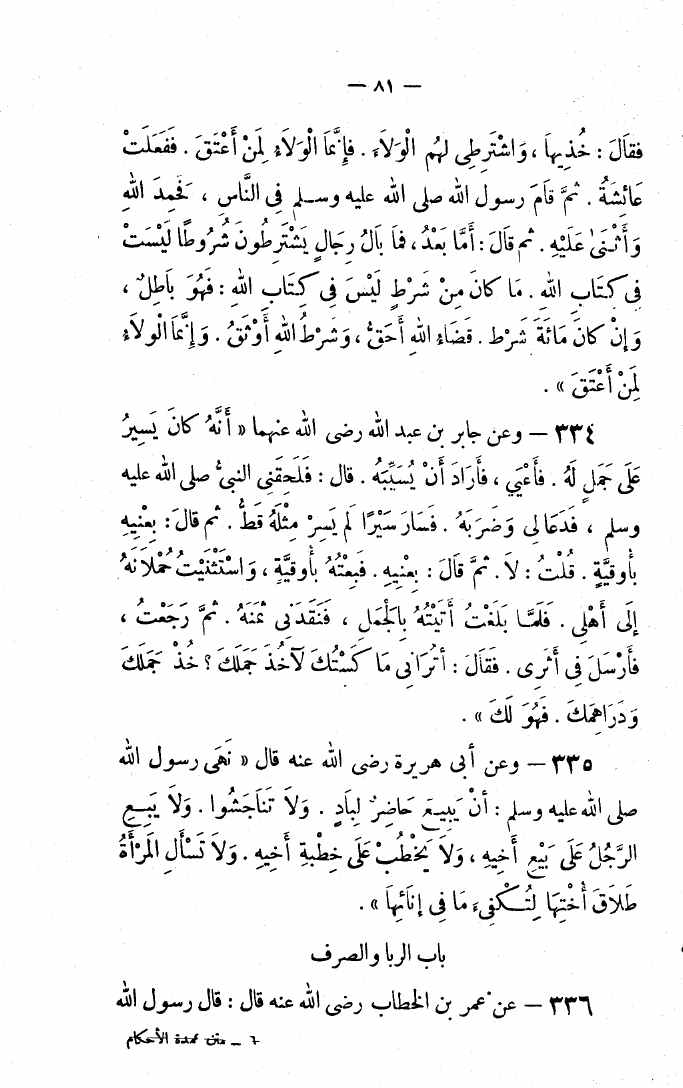 — ٨١ —
فقَالَ : خُذِيهاَ ، وَاشْتَرِطِى لهُم الْوَلاَءَ . فإِنَّمَا الْوَلاَءُ لِمَنْ أَعْتَقَ . ففَعَلَتْ
عَائِشَةُ . ثمَّ قَامَ رسول الله صلى الله عليه وسلم فِى النَّاسِ ، فَحمِدَ اللهَ
وَأَثْنَىٰ عَلَيْهِ . ثم قالَ : أَمَّا بَعْدُ ، فمَا بَالُ رِجَالٍ يَشْتَرِطُونَ شُرُوطًا لَيْسَتْ
فِى كِتَابِ اللهِ . مَا كانَ مِنْ شَرْطٍ لَيْسَ فِى كِتَابِ اللهِ : فَهُوَ بَاطِلٌ ،
وَإِنْ كانَ مَائَةَ شَرْطٍ . قَضَاءُ اللهِ أَحَقُّ ، وَشَرْطُ اللهِ أَوْثَقُ . وَإِنَّمَا الْوَلاَءُ
لِمَنْ أَعْتَقَ » .
٣٣٤ — وعن جابر بن عبد الله رضى الله عنهما « أَنَّهُ كانَ يَسِيرُ
عَلَى جَمَلٍ لَهُ . فأَعْيَي ، فأَرَادَ أَنْ يُسَيِّبَهُ . قال : فَلَحِقَنِى النبىُّ صلى الله عليه
وسلم ، فَدَعَا لِى وَضَرَبَهُ . فَسَارَ سَيْرًا لَم يَسِرْ مِثْلَهُ قَطُّ . ثم قالَ : بِعْنِيهِ
بأُوقيَّةٍ . قُلْتُ : لاَ . ثمَّ قَالَ : بِعْنِيهِ . فَبِعْتُهُ بأُوقيَّةٍ ، وَاسْتَثْنَيْتُ حُمْلاَنَهُ
إِلَى أَهْلِى . فَلَمَّا بَلَغْتُ أَتَيْتُهُ بِالْجَمَلِ ، فَنَقَدَنِى ثَمَنَهُ . ثمَّ رَجَعْتُ ،
فأَرْسَلَ فِى أَثَرِى . فَقَالَ : أتُرَانِى مَا كَسْتُكَ لآخُذَ جَمَلَكَ ؟ خُذْ جَمَلَكَ
وَدَرَاهِمَكَ . فَهُوَ لَكَ » .
٣٣٥ — وعن أبى هريرة رضى الله عنه قال « نَهَى رسول الله
صلى الله عليه وسلم : أنْ يَبِيعَ حَاضِرٌ لِبَادٍ . وَلاَ تَنَاجَشُوا . وَلاَ يَبِعِ
الرَّجُلُ عَلَى بَيْعِ أَخِيهِ ، وَلاَ يَخْطُبْ عَلَى خِطْبةِ أَخِيهِ . وَلاَ تَسْأَلِ المَرْأَةُ
طَلاَقَ أُخْتِهَا لِتُكْفِىءَ مَا فِى إِنَائِهَا » .
باب الربا والصرف
٣٣٦ — عن عمر بن الخطاب رضى الله عنه قال : قال رسول الله
٦ — متن عمدة الأحكام